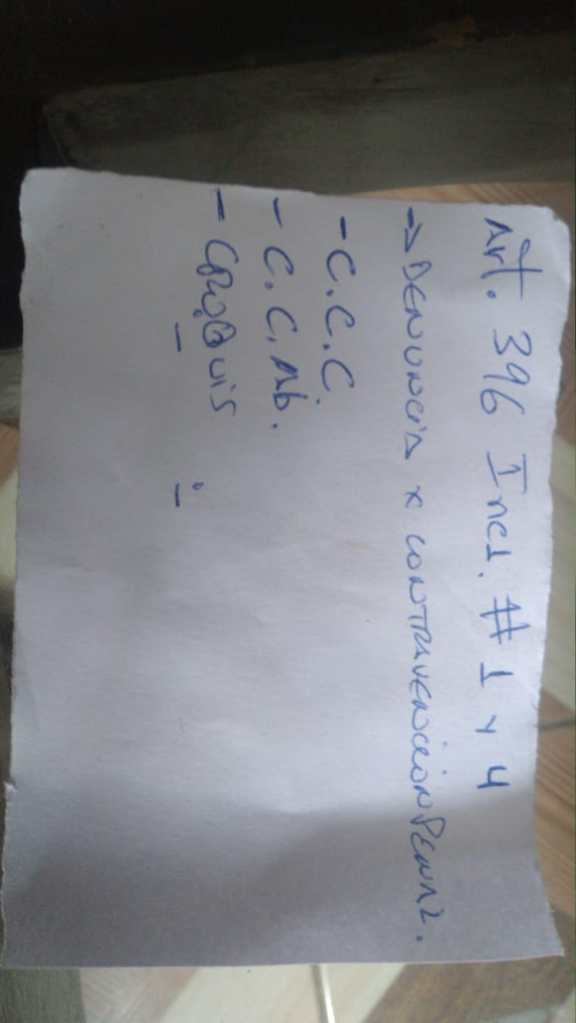 Art. 396 Inc1. # 1 y 4
→ DENUNCIA x CONTRAVENCION PENAL.
- C.C.C.
- C.C. Ab.
- CROQUIS